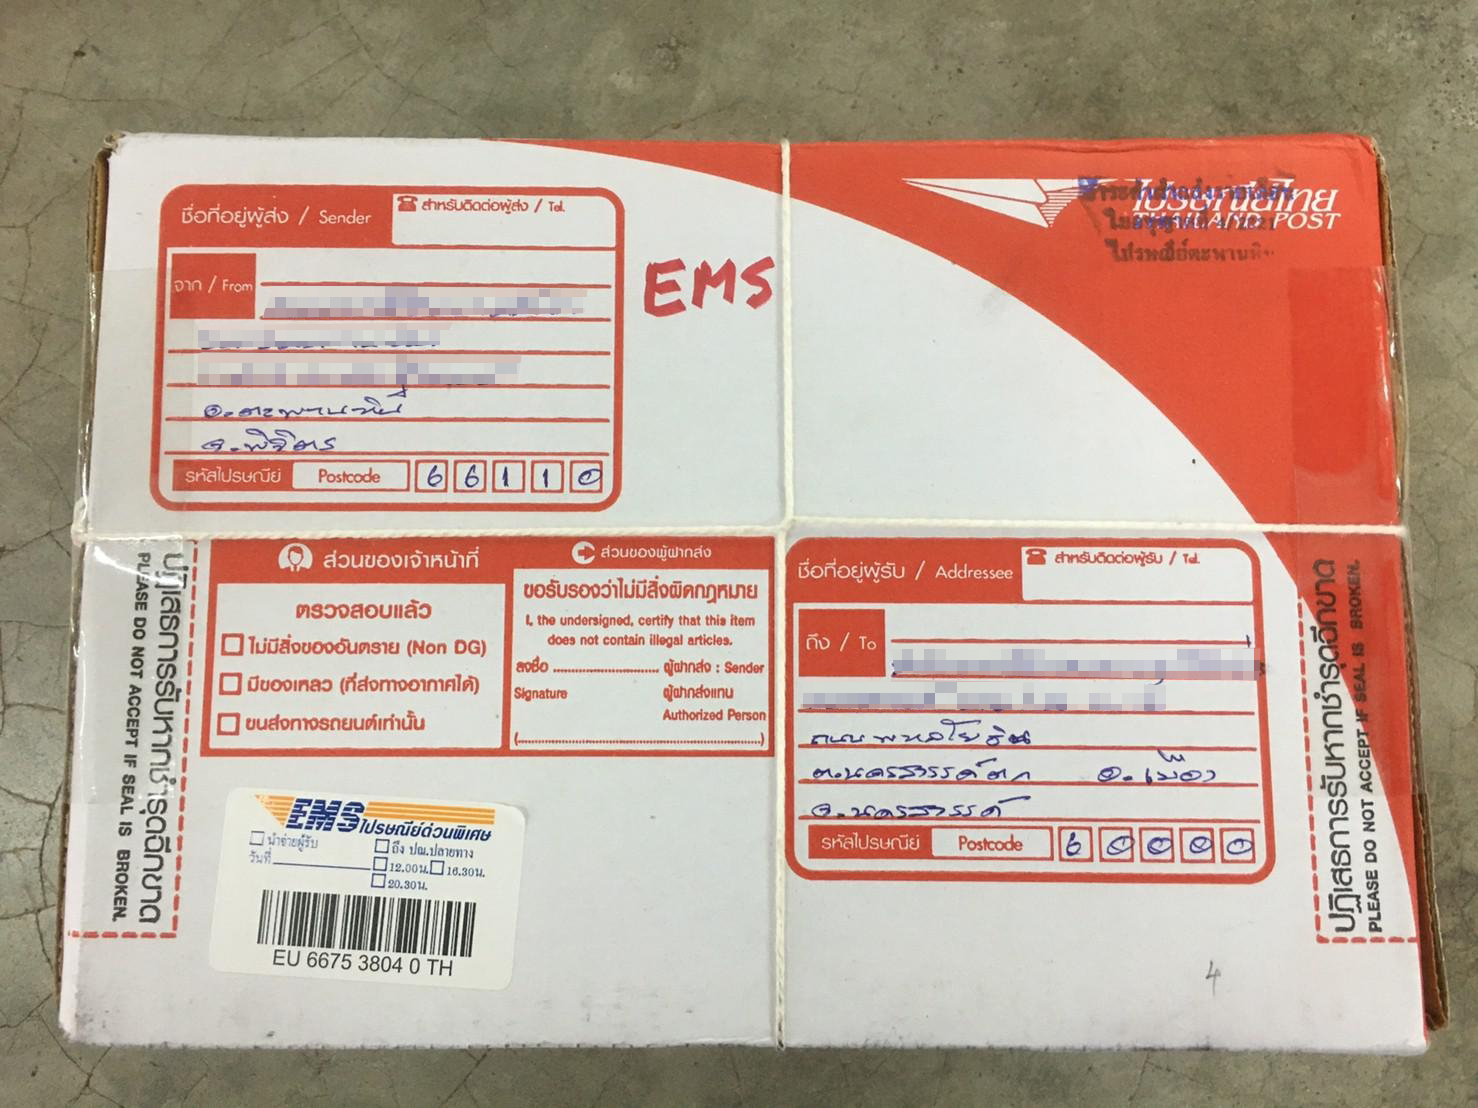 ชื่อที่อยู่ผู้ส่ง / Sender
สำหรับติดต่อผู้ส่ง / Tel.
จาก / From
อ.ตะพานหิน
จ.พิจิตร
รหัสไปรษณีย์ Postcode 66110
EMS
ไปรษณีย์ไทย
THAILAND POST
ไปรษณีย์ตะพานหิน
ปฏิเสธการรับหากชำรุดฉีกขาด
PLEASE DO NOT ACCEPT IF SEAL IS BROKEN.
ส่วนของเจ้าหน้าที่
ตรวจสอบแล้ว
ไม่มีสิ่งของอันตราย (Non DG)
มีของเหลว (ที่ส่งทางอากาศได้)
ขนส่งทางรถยนต์เท่านั้น
ส่วนของผู้ฝากส่ง
ขอรับรองว่าไม่มีสิ่งผิดกฎหมาย
I, the undersigned, certify that this item
does not contain illegal articles.
ลงชื่อ .............................. ผู้ฝากส่ง : Sender
Signature ผู้ฝากส่งแทน
Authorized Person
(......................................................................)
ชื่อที่อยู่ผู้รับ / Addressee
สำหรับติดต่อผู้รับ / Tel.
ถึง / To
ถนนพหลโยธิน
ต.นครสวรรค์ตก อ.เมือง
จ.นครสวรรค์
รหัสไปรษณีย์ Postcode 60000
ปฏิเสธการรับหากชำรุดฉีกขาด
PLEASE DO NOT ACCEPT IF SEAL IS BROKEN.
EMS ไปรษณีย์ด่วนพิเศษ
นำจ่ายผู้รับ ถึง ปณ.ปลายทาง
วันที่ 12.00น. 16.30น.
20.30น.
EU 6675 3804 0 TH
4